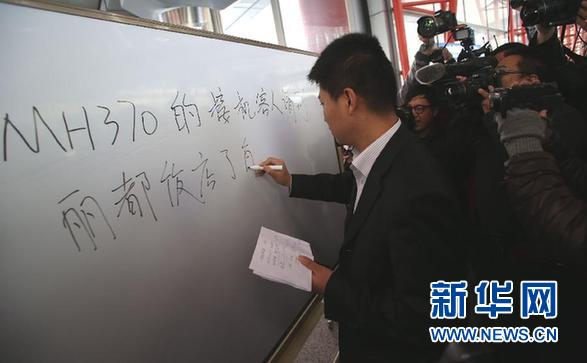 MH370的接机客人请到
丽都饭店了
新华网
WWW.NEWS.CN